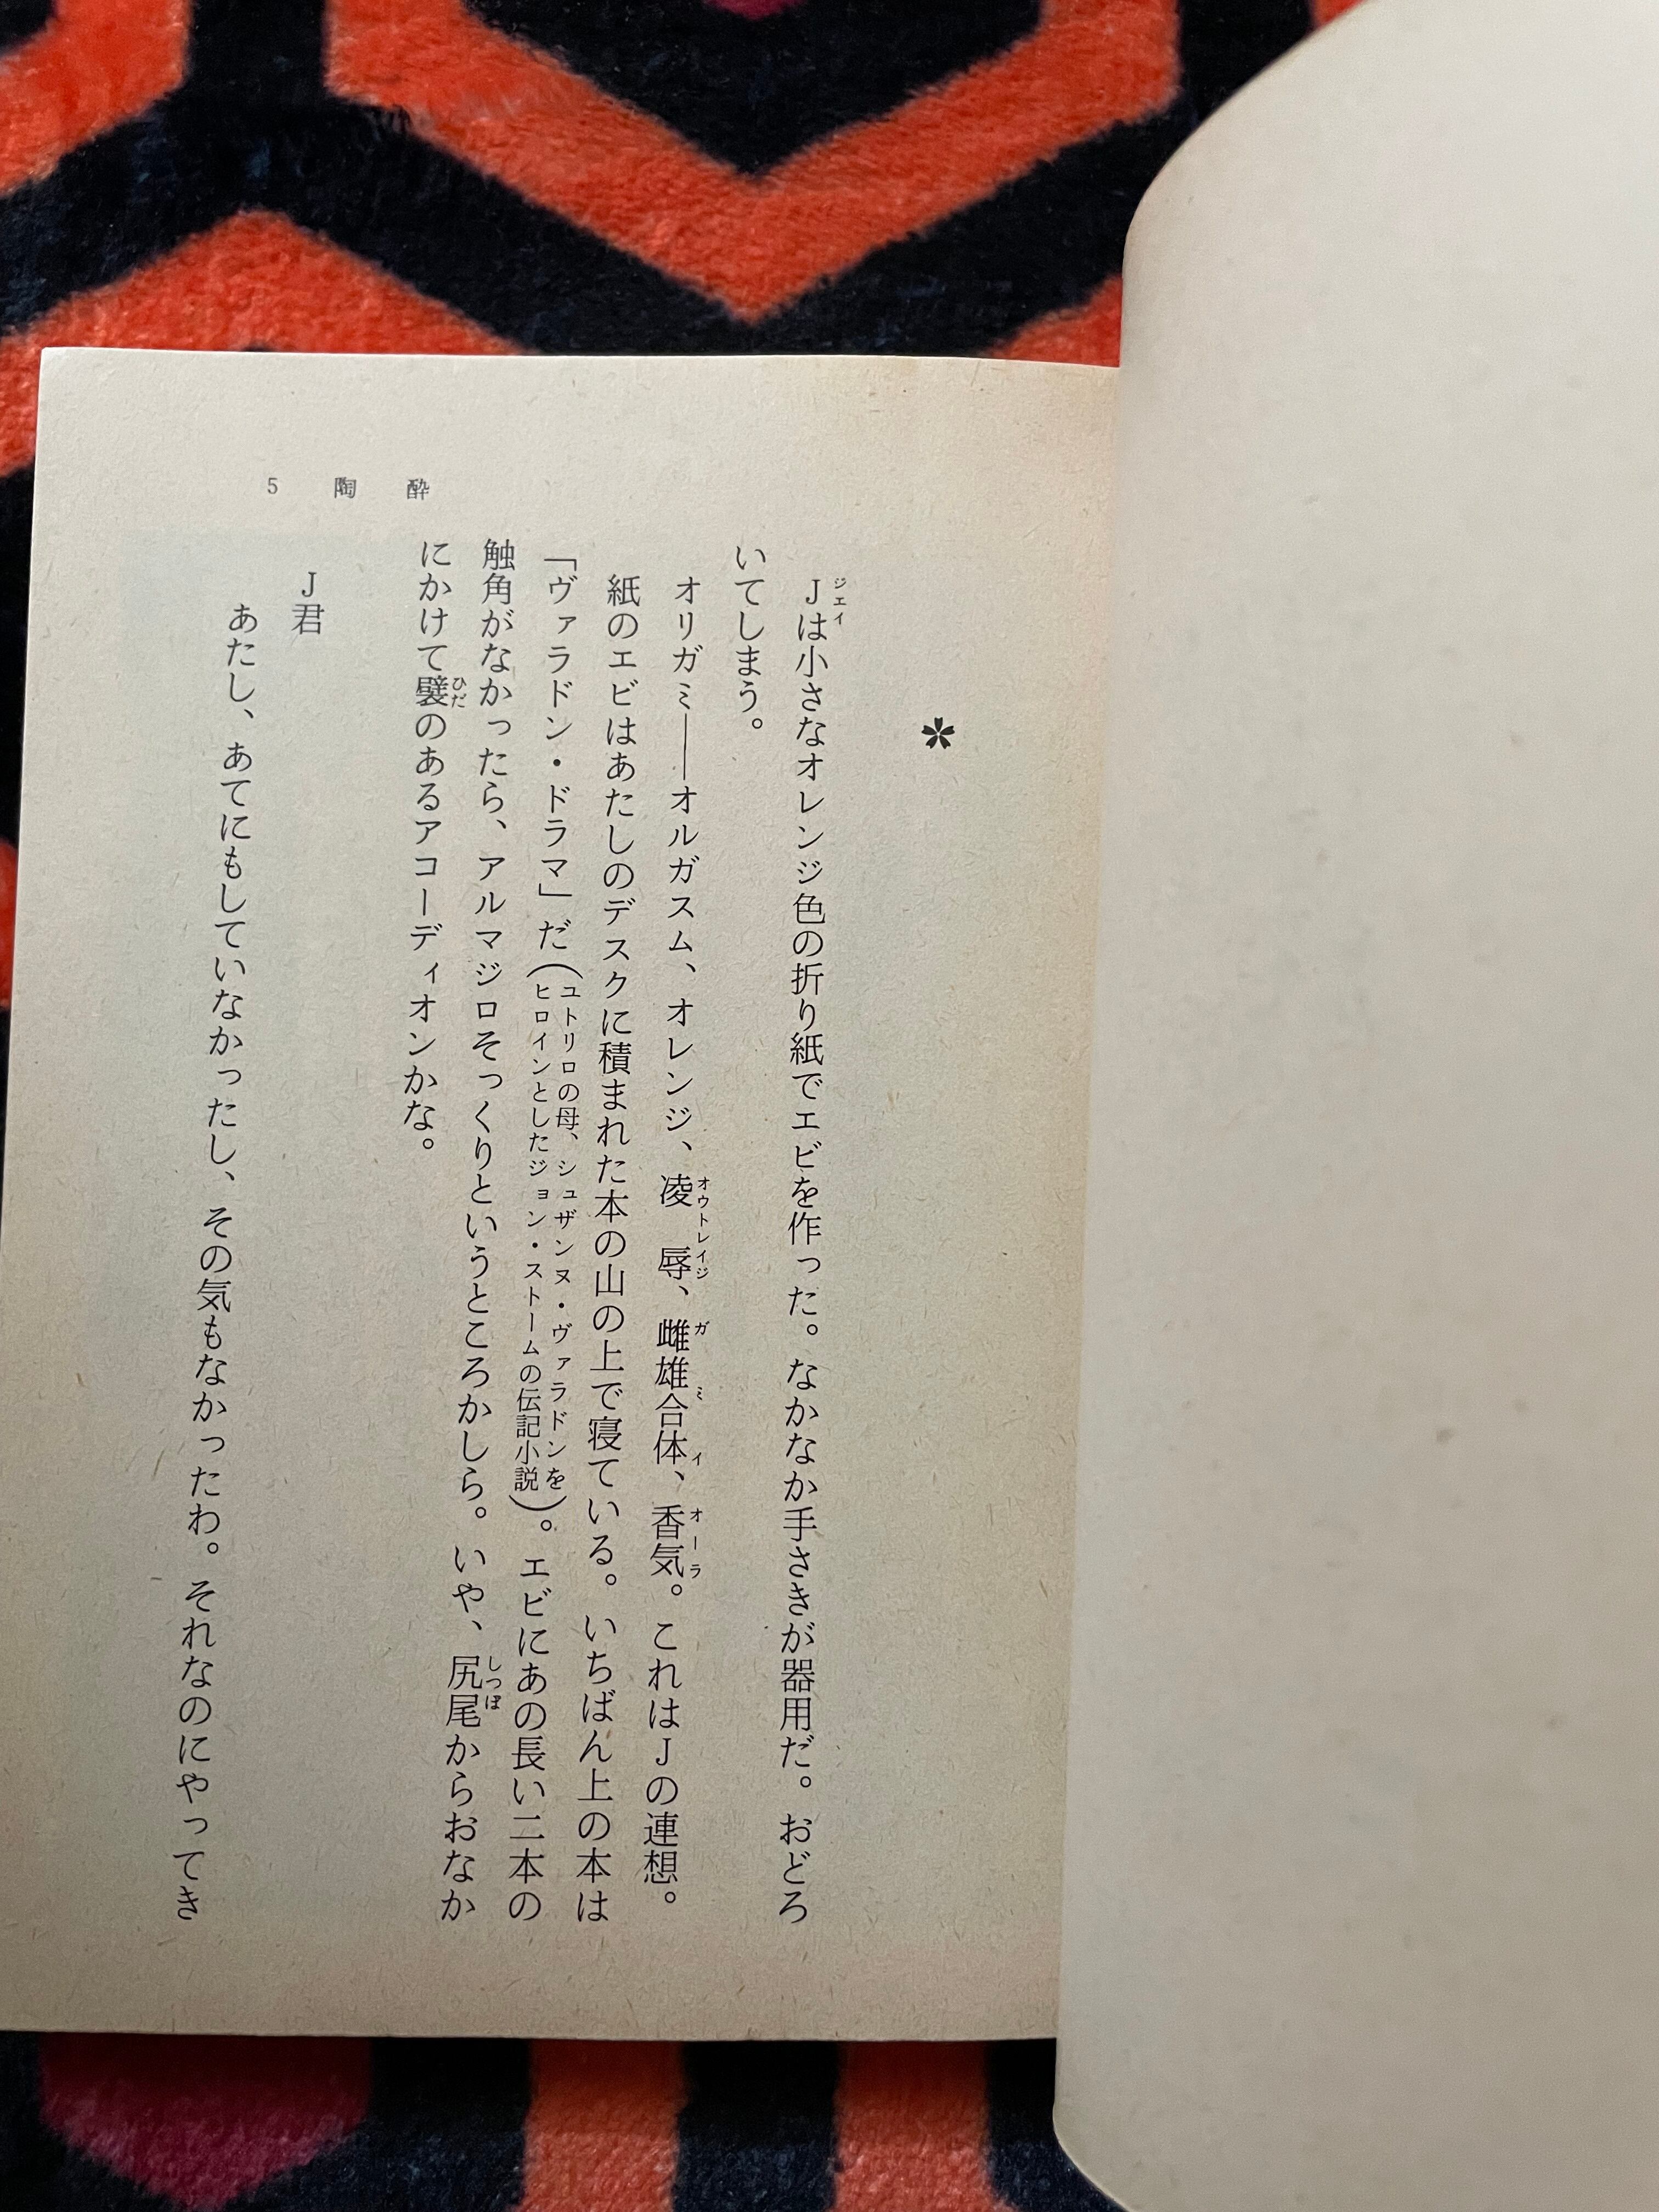 5 陶酔
Jは小さなオレンジ色の折り紙でエビを作った。なかなか手さきが器用だ。おどろ
ジエイ
いてしまう。
オリガミ――オルガスム、オレンジ、凌辱、雌雄合体、香気。これはJの連想。
オウトレイジ ガミイ オーラ
紙のエビはあたしのデスクに積まれた本の山の上で寝ている。いちばん上の本は
「ヴァラドン・ドラマ」だ(ユトリロの母、シュザンヌ・ヴァラドンをヒロインとしたジョン・ストームの伝記小説)。エビにあの長い二本の
触角がなかったら、アルマジロそっくりというところかしら。いや、尻尾からおなか
しつぽ
にかけて襞のあるアコーディオンかな。
ひだ
J君
あたし、あてにもしていなかったし、その気もなかったわ。それなのにやってき